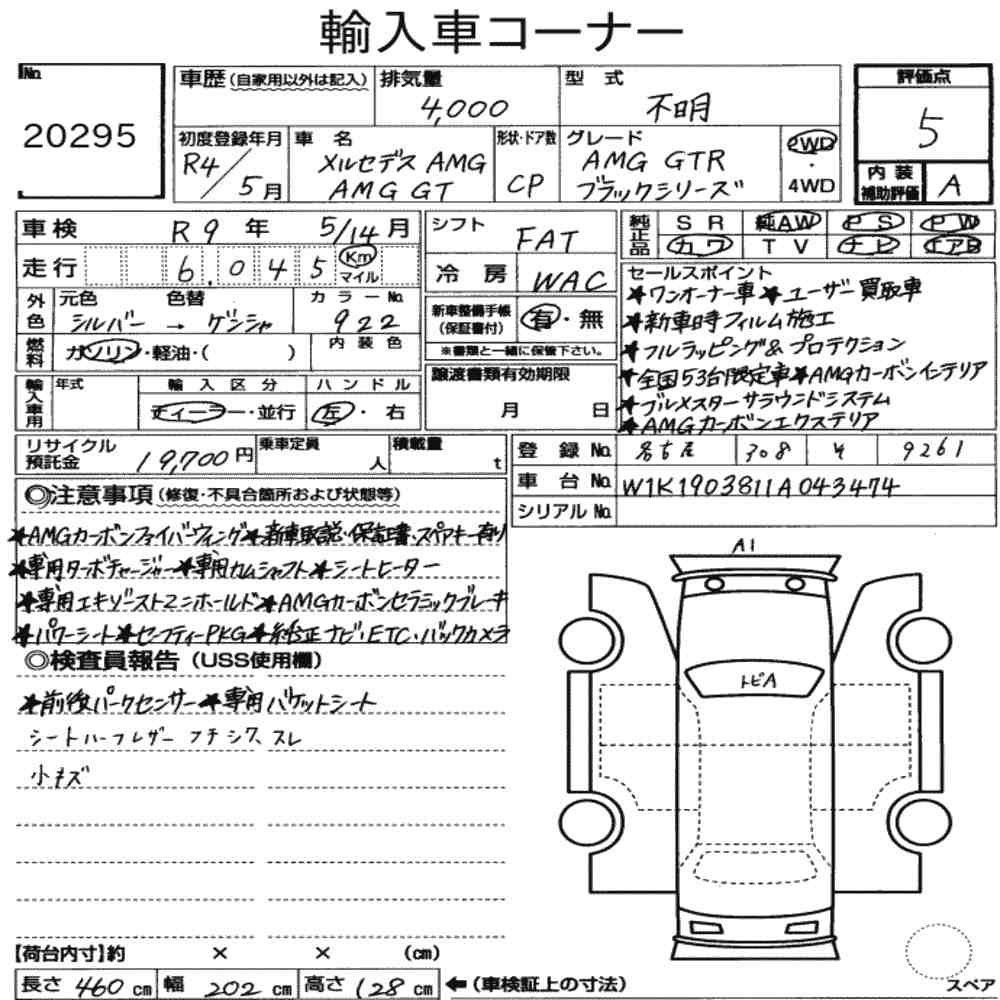 輸入車コーナー
No.
20295
車歴(自家用以外は記入)
排気量
4,000
型式
不明
評価点
5
内装補助評価
A
初度登録年月
R4/5月
車名
メルセデス AMG
AMG GT
形状・ドア数
CP
グレード
AMG GTR
ブラックシリーズ
2WD
・
4WD
車検 R9年 5/14月
走行 6,045 Km マイル
外色
元色 色替
シルバー → ゲンシャ
カラーNo.
922
燃料
ガソリン・軽油・( )
内装色
シフト FAT
冷房 WAC
新車整備手帳(保証書付) 有・無
※書類と一緒に保管下さい。
純正品
SR 純AW PS PW
カワ TV ナビ エアB
セールスポイント
★ワンオーナー車★ユーザー買取車
★新車時フィルム施工
★フルラッピング&プロテクション
★全国53台限定車★AMGカーボンインテリア
★ブルメスターサラウンドシステム
★AMGカーボンエクステリア
輸入車用
年式
輸入区分
ディーラー・並行
ハンドル
左・右
譲渡書類有効期限
月 日
リサイクル預託金 19,700円
乗車定員 人
積載量 t
登録No. 名古屋 308 そ 9261
車台No. W1K1903811A043474
シリアルNo.
◎注意事項(修復・不具合箇所および状態等)
★AMGカーボンファイバーウィング★新車取説・保証書・スペアキー有り
★専用ターボチャージャー★専用カムシャフト★シートヒーター
★専用エキゾーストマニホールド★AMGカーボンセラミックブレーキ
★パワーシート★セーフティーPKG★純正ナビ・ETC・バックカメラ
◎検査員報告(USS使用欄)
★前後パークセンサー★専用バケットシート
シートハーフレザー フチシワ、スレ
小キズ
A1
トビA
【荷台内寸】約 × × (cm)
長さ 460 cm 幅 202 cm 高さ 128 cm ←(車検証上の寸法)
スペア